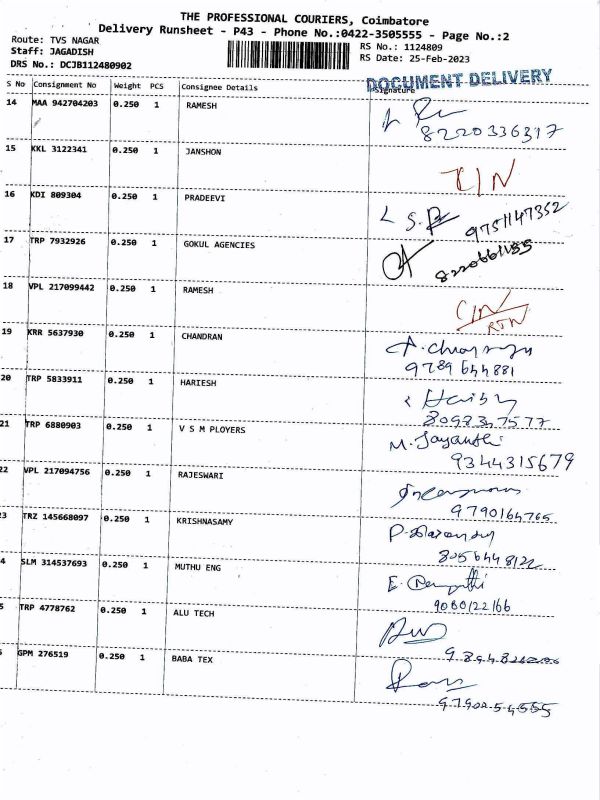 THE PROFESSIONAL COURIERS, Coimbatore
Delivery Runsheet - P43 - Phone No.:0422-3505555 - Page No.:2
Route: TVS NAGAR
Staff: JAGADISH
DRS No.: DCJB112480902
RS No.: 1124809
RS Date: 25-Feb-2023
DOCUMENT DELIVERY
S No Consignment No Weight PCS Consignee Details Signature
14 MAA 942704203 0.250 1 RAMESH
8220336317
15 KKL 3122341 0.250 1 JANSHON
CIN
16 KDI 809304 0.250 1 PRADEEVI
9751147352
17 TRP 7932926 0.250 1 GOKUL AGENCIES
8220661155
18 VPL 217099442 0.250 1 RAMESH
CIN
RTN
19 KRR 5637930 0.250 1 CHANDRAN
9789644881
20 TRP 5833911 0.250 1 HARIESH
21 TRP 6880903 0.250 1 V S M PLOYERS
M. Jayanthi
9344315679
22 VPL 217094756 0.250 1 RAJESWARI
9790164765
23 TRZ 145668097 0.250 1 KRISHNASAMY
8056448122
4 SLM 314537693 0.250 1 MUTHU ENG
9080122166
5 TRP 4778762 0.250 1 ALU TECH
GPM 276519 0.250 1 BABA TEX